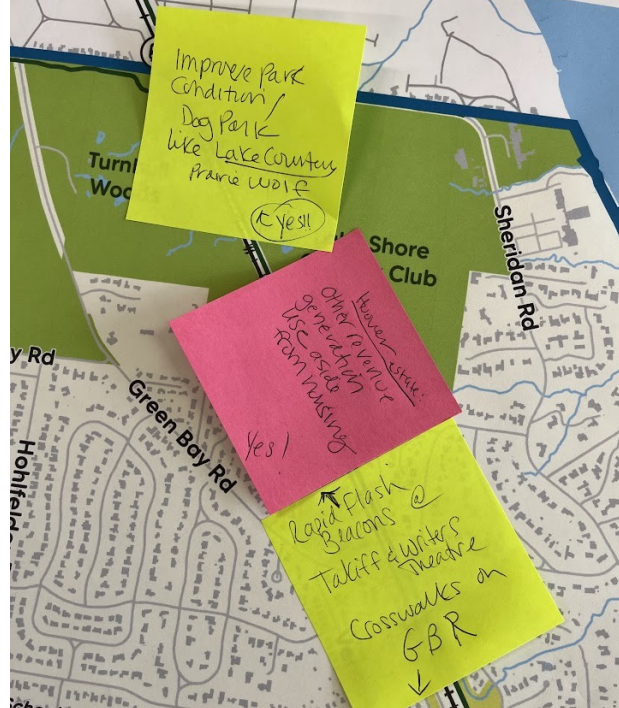 Improve Park
Condition/
Dog Park
like Lake County
Prairie Wolf
↑ Yes!!
Turn
Woo
Shore
Club
Sheridan Rd
Hoover Estate:
Other revenue
generation
use aside
from housing
Yes!
y Rd
Green Bay Rd
Hohlfeld
Rapid Flash
Beacons @
Takiff & Writers
Theatre
Crosswalks on
GBR